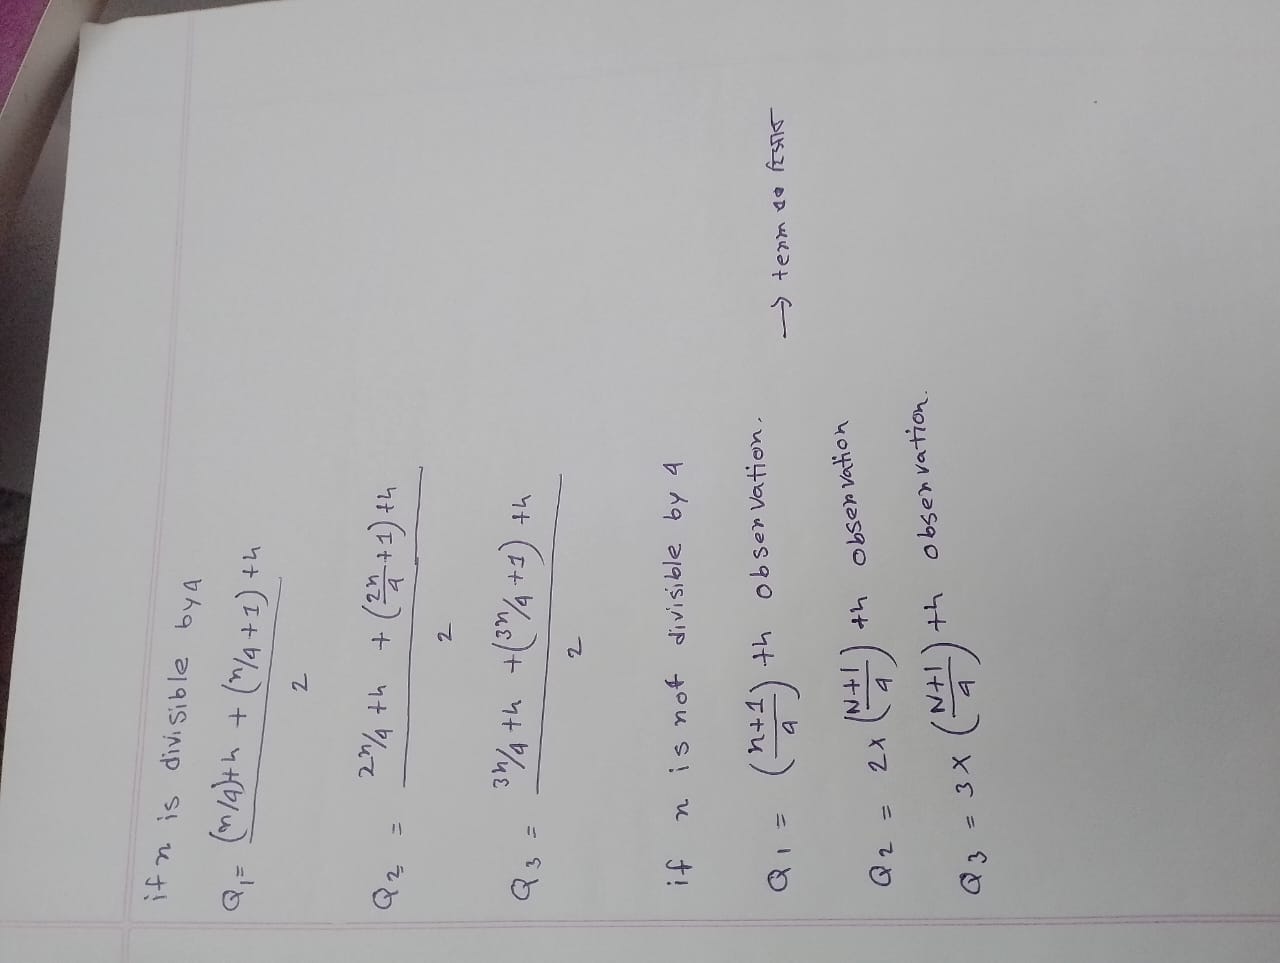 if n is divisible by 4
Q₁ = (n/4)th + (n/4 + 1) th
2
Q₂ = 2n/4 th + (2n/4 + 1) th
2
Q₃ = 3n/4 th + (3n/4 + 1) th
2
if n is not divisible by 4
Q₁ = (n+1/4) th observation. → term এর হিসাব
Q₂ = 2x (N+1/4) th observation
Q₃ = 3x (N+1/4) th observation.